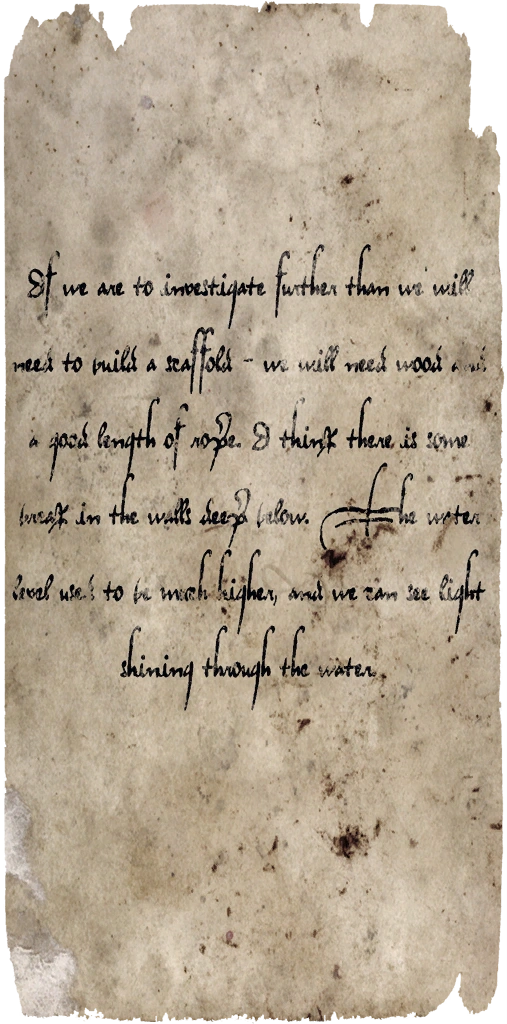 If we are to investigate further than we will
need to build a scaffold - we will need wood and
a good length of rope. I think there is some
break in the walls deep below. The water
level used to be much higher, and we can see light
shining through the water.